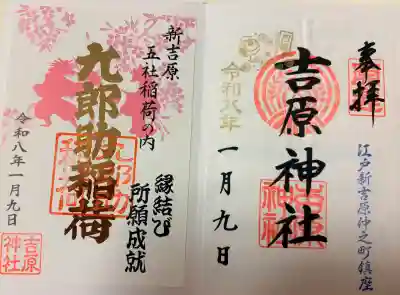 奉拝
江戸新吉原仲之町鎮座
吉原神社
吉原神社
令和八年
一月九日
新吉原
五社稲荷の内
九郎助稲荷
九郎助稲荷
縁結び
所願成就
令和八年一月九日
吉原神社